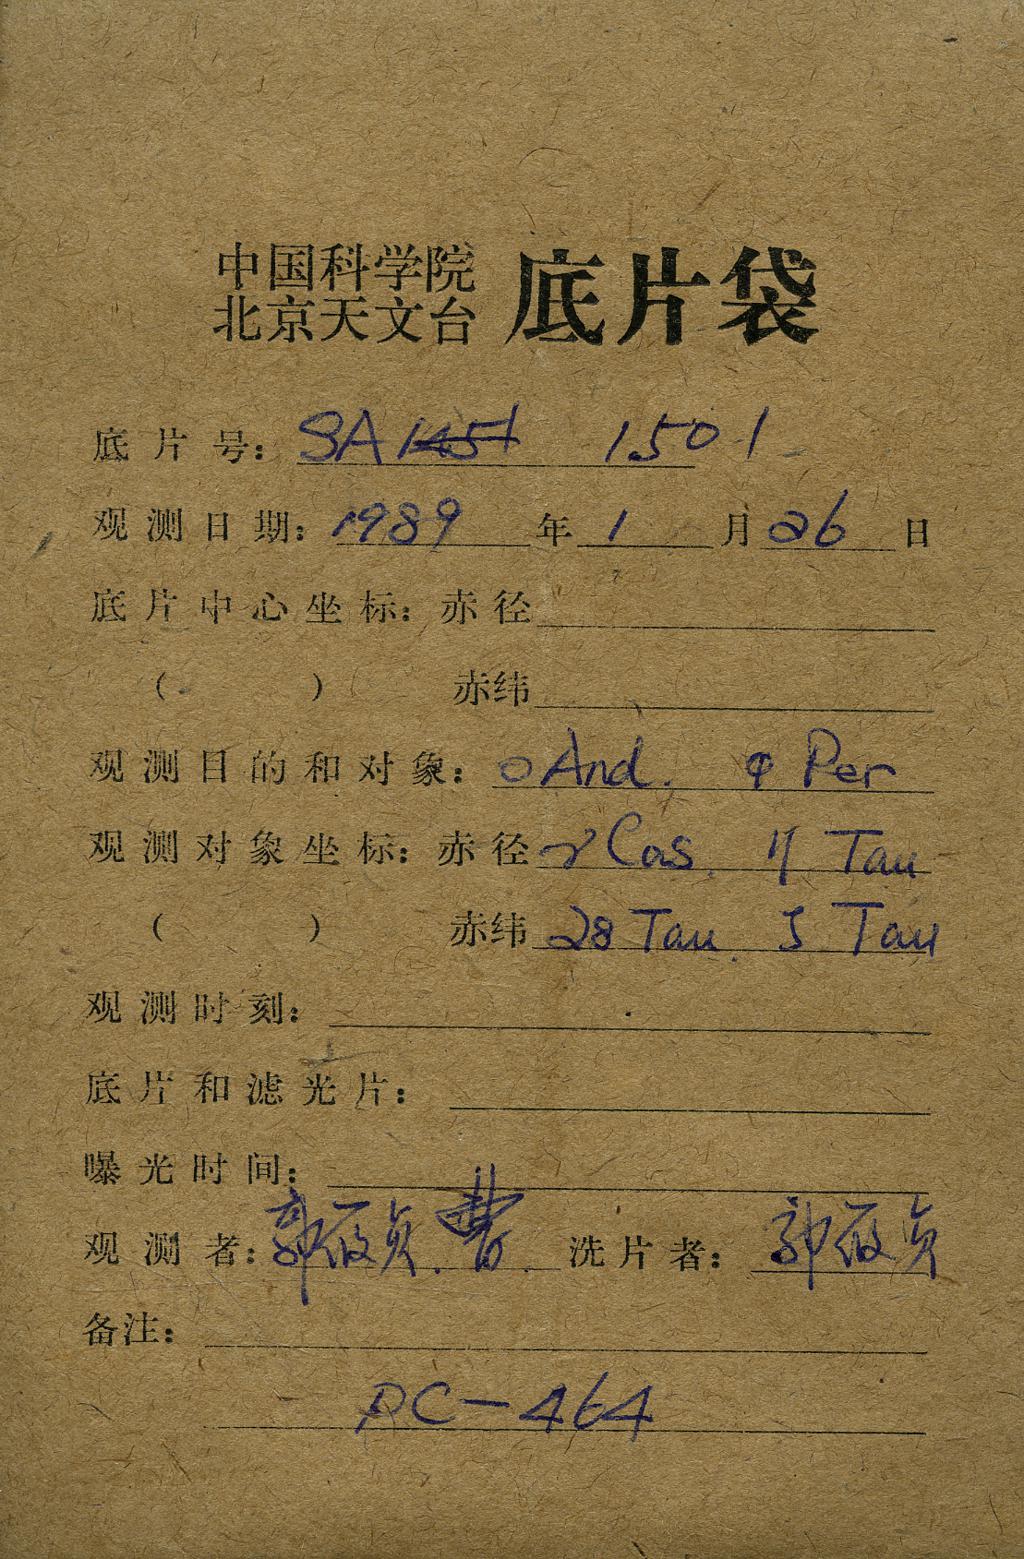 中国科学院
北京天文台 底片袋
底片号: SA 1451 1501
观测日期: 1989 年 1 月 26 日
底片中心坐标: 赤径
( ) 赤纬
观测目的和对象: o And. φ Per
观测对象坐标: 赤径 γ Cas. 17 Tau
( ) 赤纬 28 Tau. ζ Tau
观测时刻:
底片和滤光片:
曝光时间:
观测者: 郭筱贞. 曹. 洗片者: 郭筱贞
备注:
PC-464